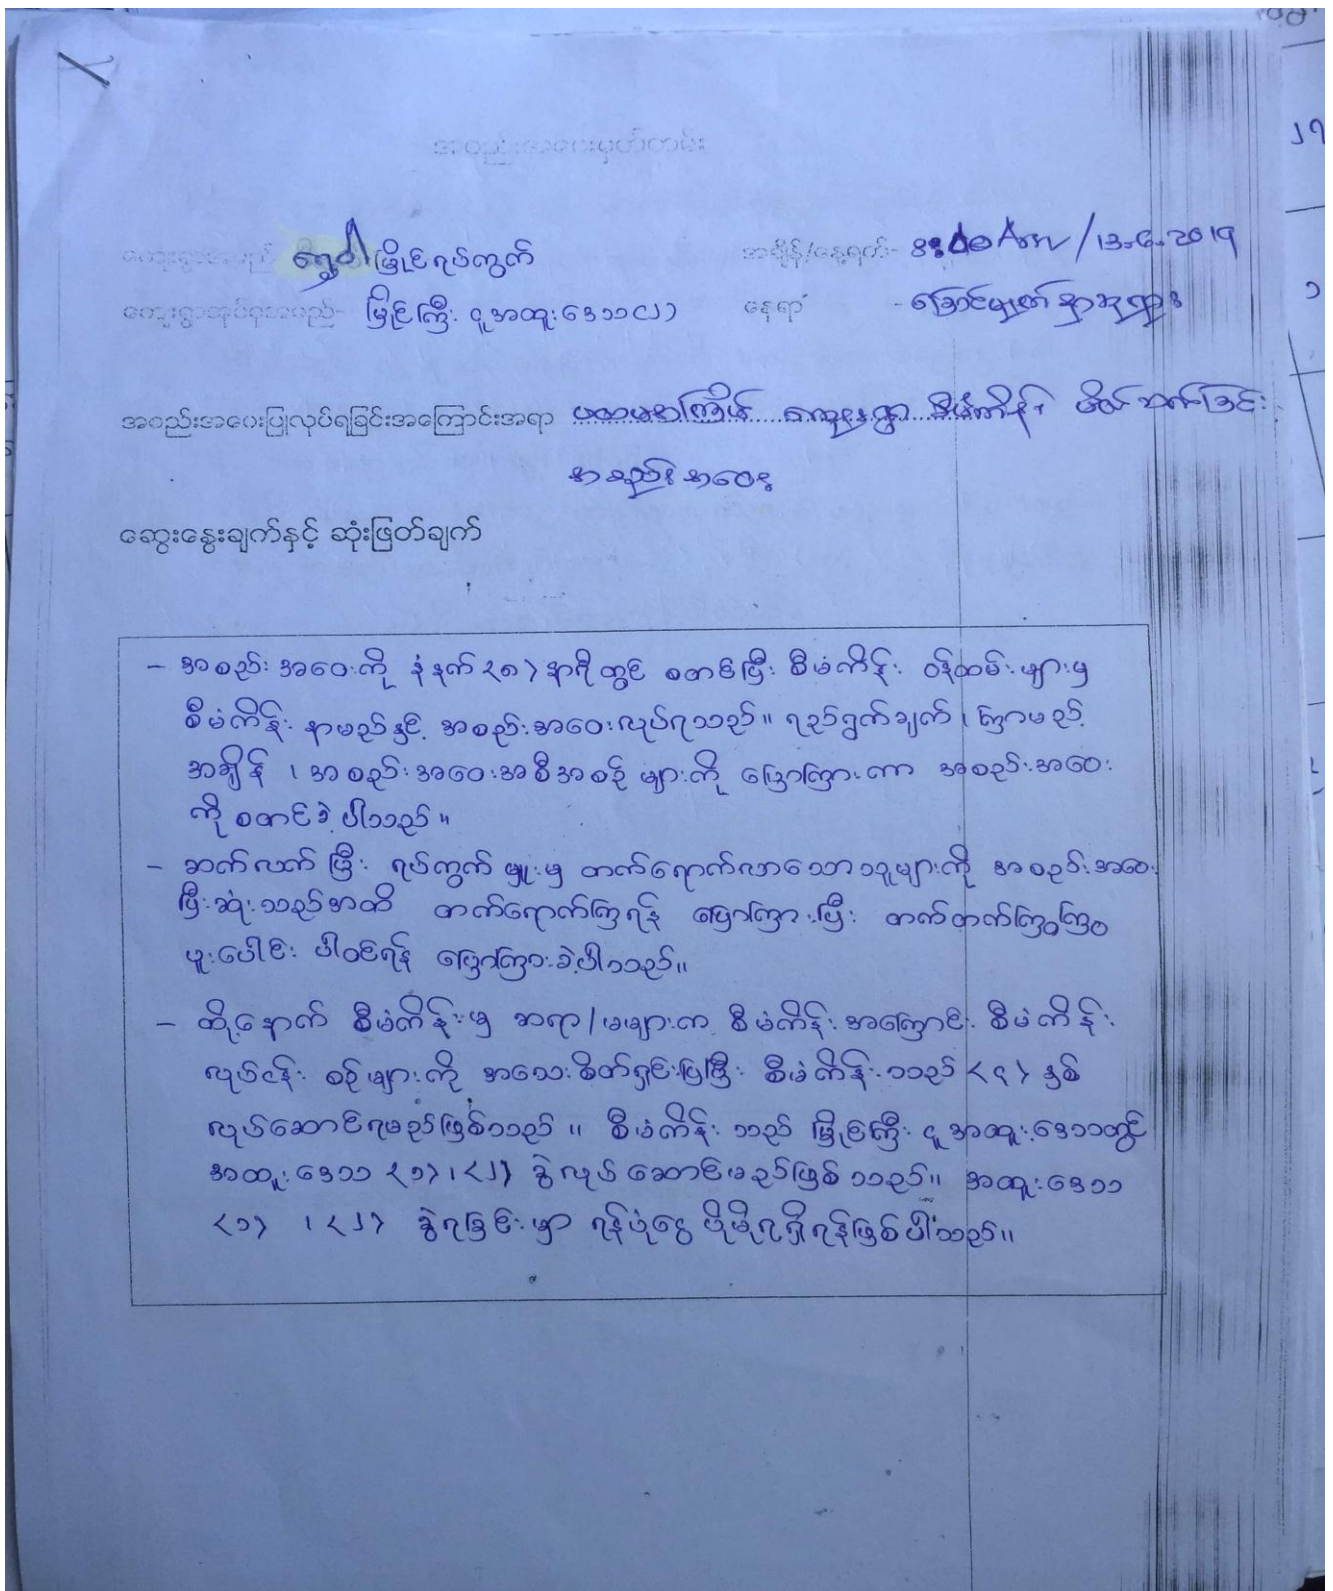 အစည်းအဝေးမှတ်တမ်း
ကျေးရွာအမည် ရွှေဝါမြိုင်ရပ်ကွက် အချိန်/နေ့ရက်- 8:00 Am / 13.6.2019
ကျေးရွာအုပ်စုအမည်- မြိုင်ကြီးငူအထူးဒေသ(၂) နေရာ -
အစည်းအဝေးပြုလုပ်ရခြင်းအကြောင်းအရာ ပထမအကြိမ် ကျေးရွာ စီမံကိန်း မိတ်ဆက်ခြင်း
အစည်းအဝေး
ဆွေးနွေးချက်နှင့် ဆုံးဖြတ်ချက်
- အစည်းအဝေးကို နံနက် <၈> နာရီတွင် စတင်ပြီး စီမံကိန်း ဝန်ထမ်းများမှ
စီမံကိန်း နာမည်နှင့် အစည်းအဝေးလုပ်ရသည်။ ရည်ရွက်ချက်၊ ကြာမည့်
အချိန်၊ အစည်းအဝေးအစီအစဉ်များကို ပြောကြားကာ အစည်းအဝေး
ကို စတင်ခဲ့ပါသည်။
- ဆက်လက်ပြီး ရပ်ကွက်မှူးမှ တက်ရောက်လာသောသူများကို အစည်းအဝေး
ပြီးဆုံးသည်အထိ တက်ရောက်ကြရန် ပြောကြားပြီး တက်တက်ကြွကြွ
ပူးပေါင်း ပါဝင်ရန် ပြောကြားခဲ့ပါသည်။
- ထို့နောက် စီမံကိန်းမှ ဆရာ/မများက စီမံကိန်းအကြောင်း စီမံကိန်း
လုပ်ငန်းစဉ်များကို အသေးစိတ်ရှင်းပြပြီး စီမံကိန်းသည် <၄> နှစ်
လုပ်ဆောင်ရမည်ဖြစ်သည်။ စီမံကိန်းသည် မြိုင်ကြီးငူအထူးဒေသတွင်
အထူးဒေသ <၁>၊ <၂> ခွဲလုပ်ဆောင်မည်ဖြစ်သည်။ အထူးဒေသ
<၁>၊ <၂> ခွဲရခြင်းမှာ ရန်ပုံငွေ ပိုမိုရရှိရန်ဖြစ်ပါသည်။